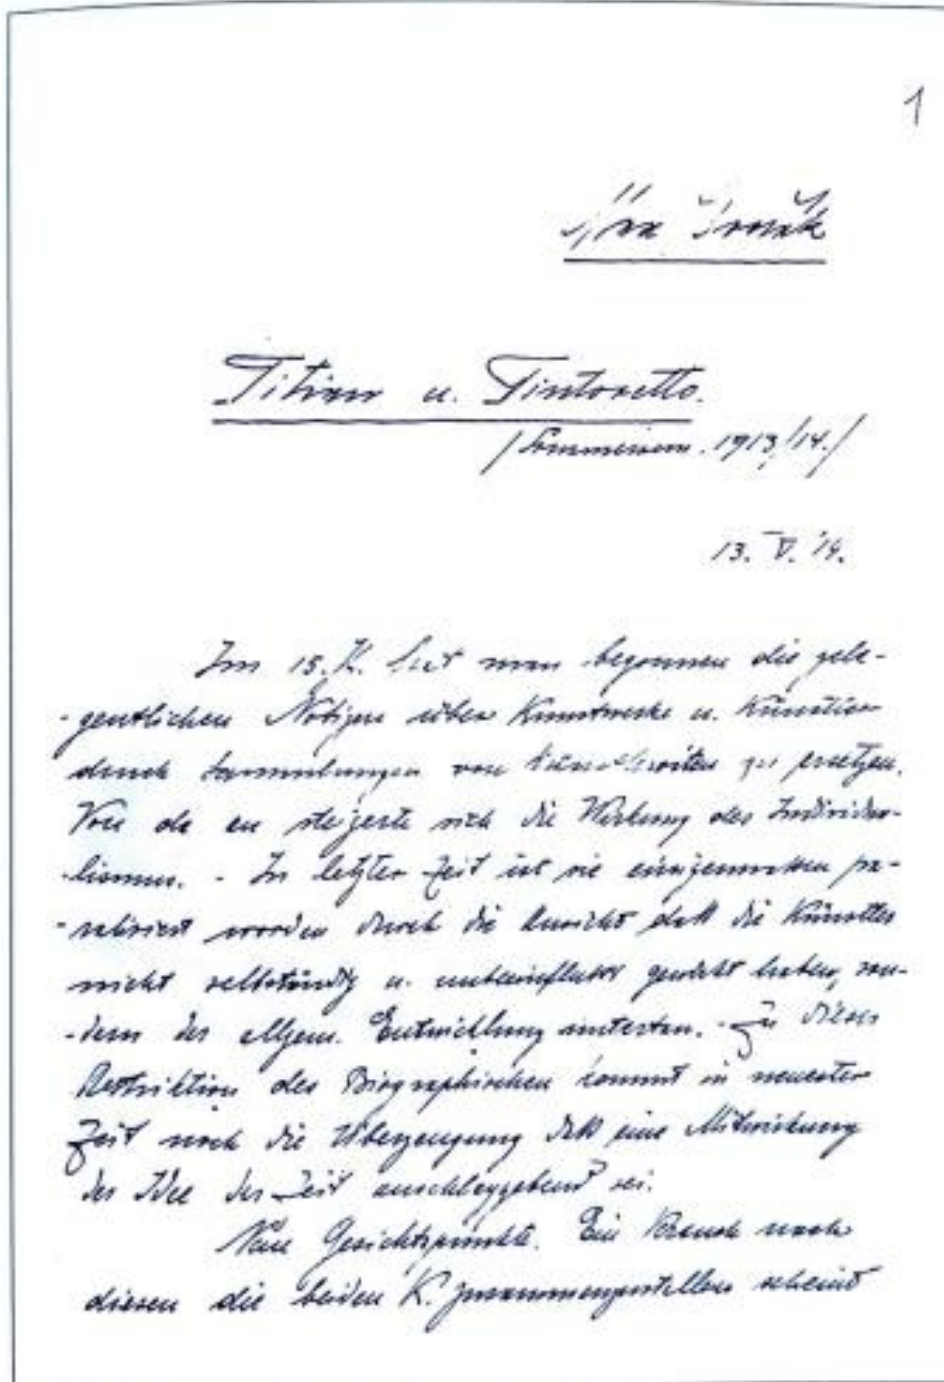 1
Max Dvořák
Titian u. Tintoretto.
/Sommersem. 1913/14./
13. V. '14.
Im 15. Jh. hat man begonnen die gele-
-gentlichen Notizen über Kunstwerke u. Künstler
durch Sammlungen von zu ersetzen.
Von da an steigerte sich die Wirkung des Individua-
-lismus. - In letzter Zeit ist sie einigermassen pa-
-ralisiert worden durch die Ansicht daß die Künstler
nicht selbständig u. unbeeinflußt gewirkt haben, son-
-dern der allgem. Entwicklung - Zu dieser
Restriktion des Biographischen kommt in neuester
Zeit noch die Überzeugung daß eine Mitwirkung
der Idee der Zeit ausschlaggebend sei.
Neue Gesichtspunkte. Ein nach
diesen die beiden K. zusammenzustellen scheint